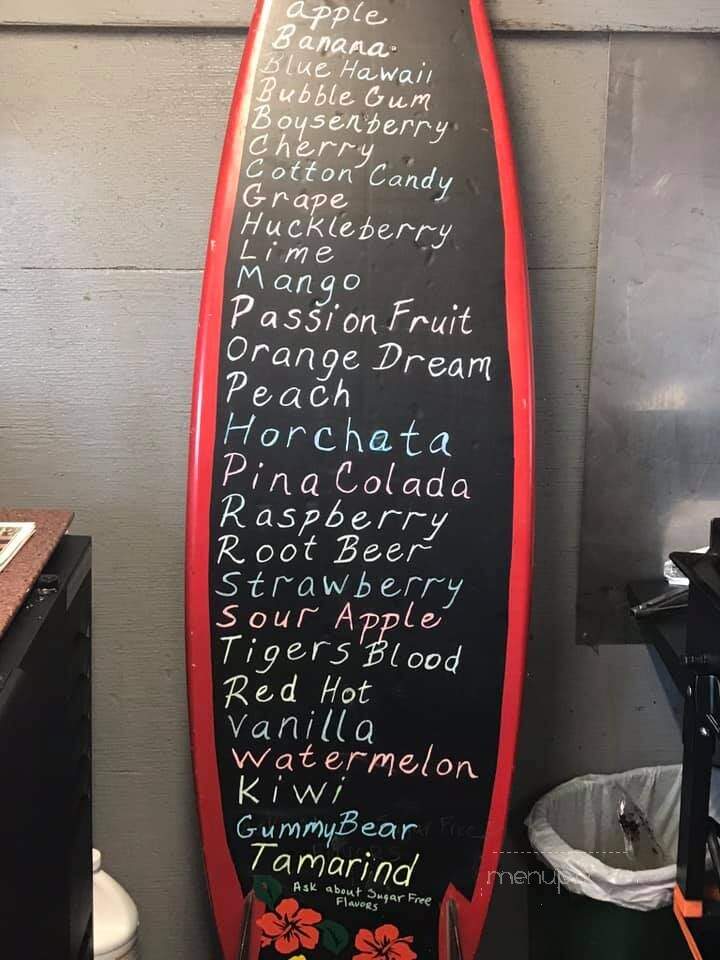 apple
Banana
Blue Hawaii
Bubble Gum
Boysenberry
Cherry
Cotton Candy
Grape
Huckleberry
Lime
Mango
Passion Fruit
Orange Dream
Peach
Horchata
Pina Colada
Raspberry
Root Beer
Strawberry
Sour Apple
Tigers Blood
Red Hot
Vanilla
Watermelon
Kiwi
Gummy Bear
Tamarind
Ask about Sugar Free
Flavors